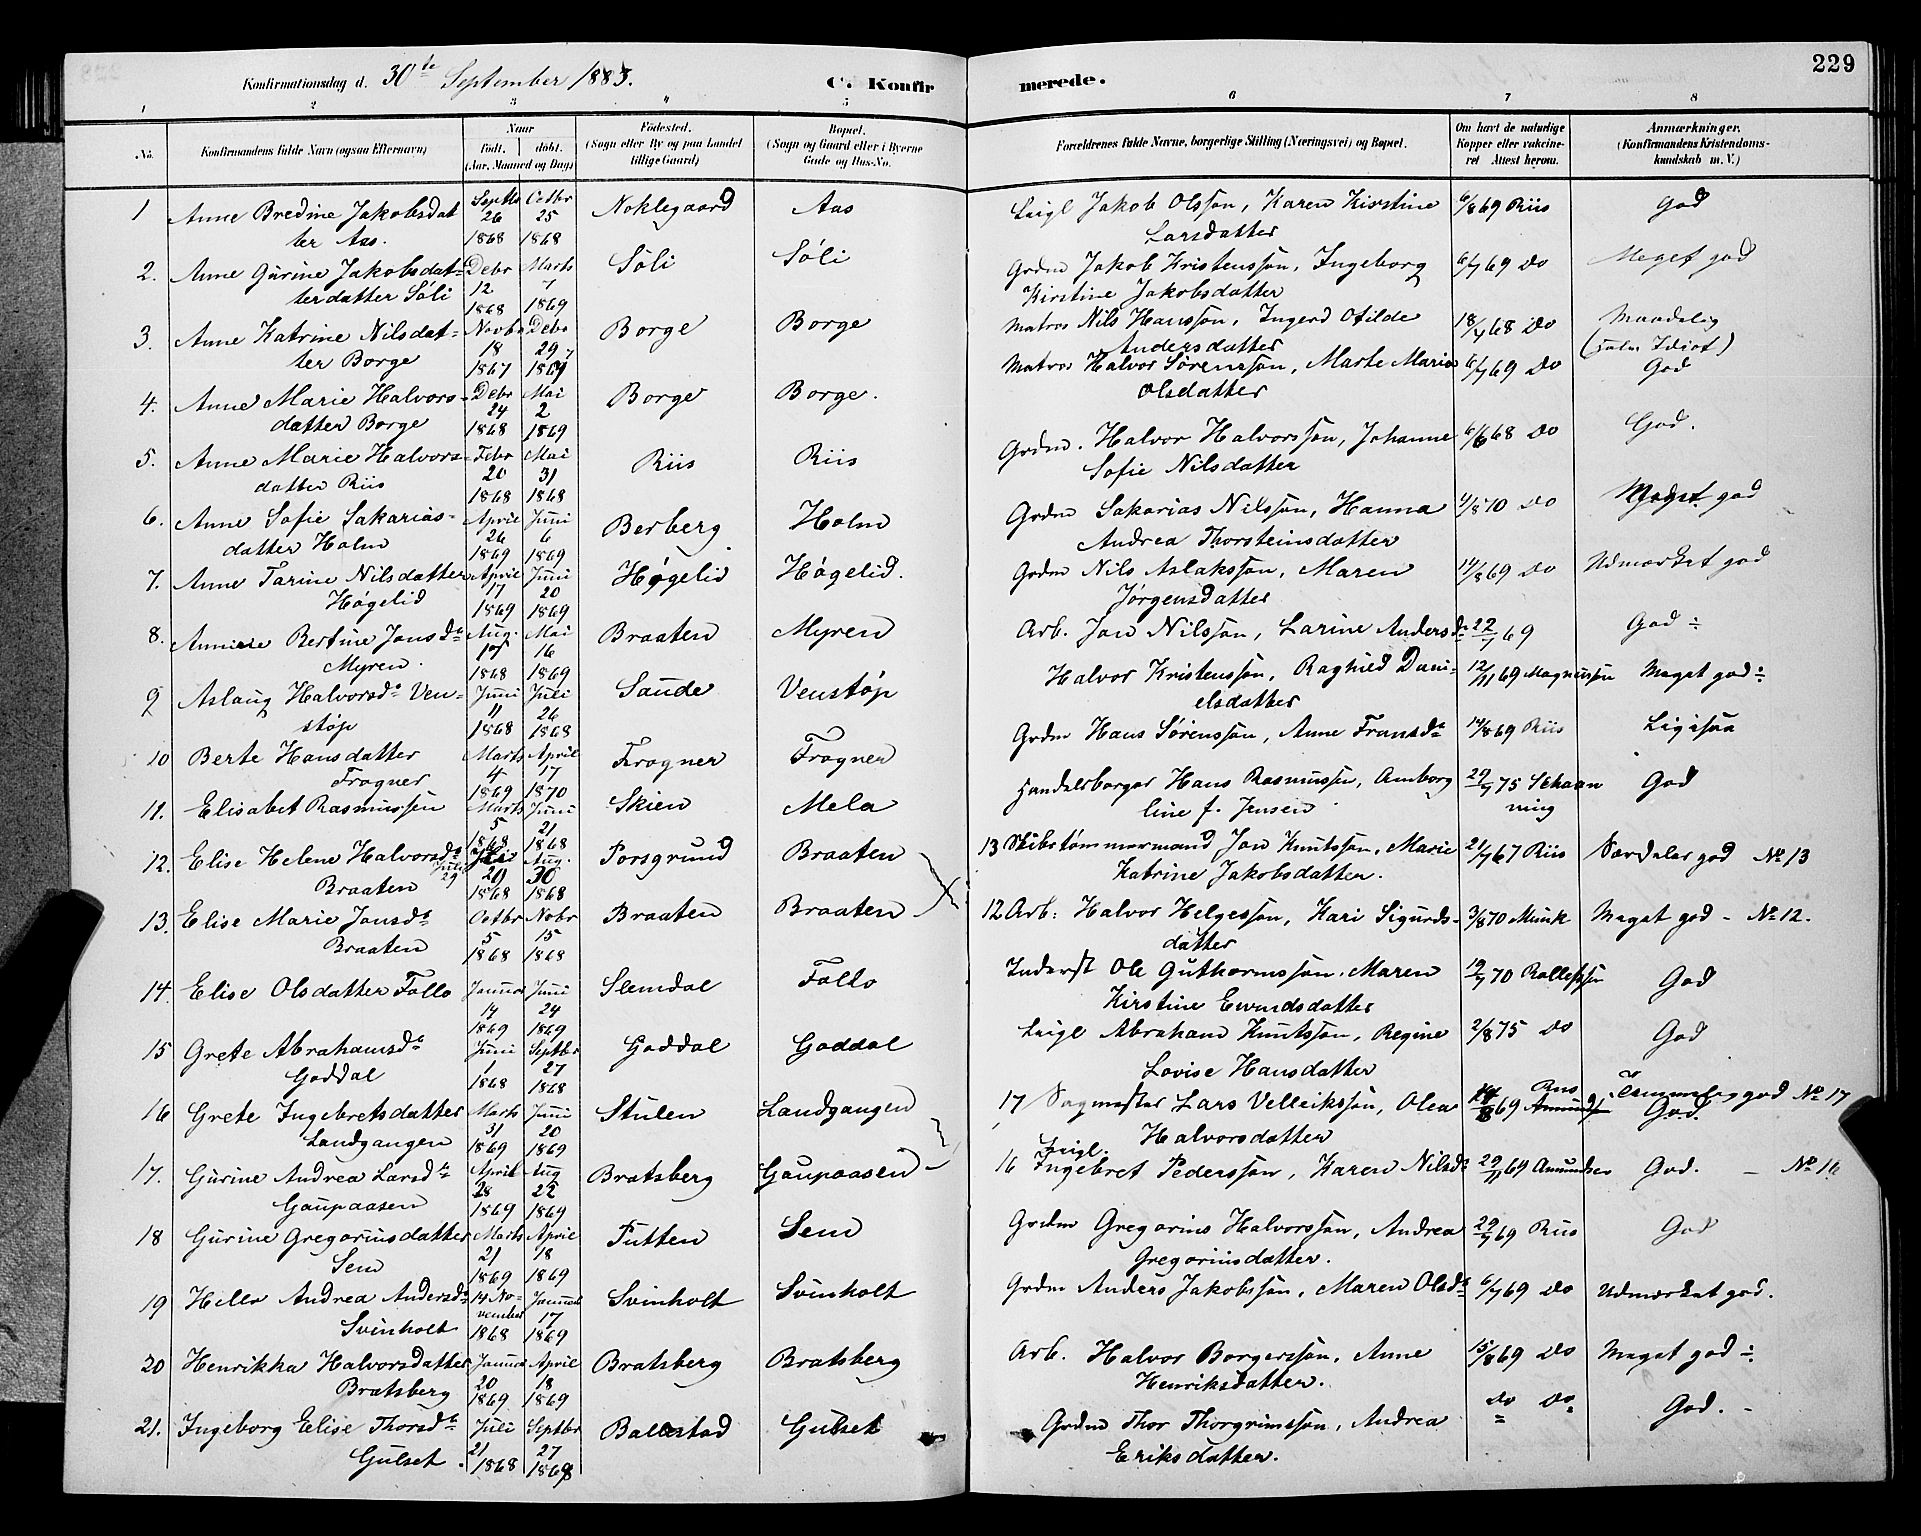 229
Konfirmationsdag d. 30te September 1883.
C. Konfirmerede.
1 2 3 " 5 6 7 8
No.
Konfirmandens fulde Navn (ogsaa Efternavn)
Naar
født. døbt.
(Aar, Maaned og Dag)
Fødested.
(Sogn eller By og paa Landet tillige Gaard)
Bopæl.
(Sogn og Gaard eller i Byerne Gade og Hus-No.
Forældrenes fulde Navne, borgerlige Stilling (Næringsvei) og Bopæl.
Om havt de naturlige Kopper eller vakcineret Attest herom.
Anmærkninger.
(Konfirmandens Kristendomskundskab m. V.)
1 Anne Bredine Jakobsdatter Aas. Septbr 26 1868 Octbr 25 1868 Noklegaard Aas Leigl Jakob Olssøn, Karen Kirstine Larsdatter 6/8 69 Riis God
2. Anne Gurine Jakobsdatterdatter Sôli Debr 12 1868 Marts 7 1869 Sôli Sôli Grdm Jakob Kristenssøn, Ingeborg Kirstine Jakobsdatter 6/7 69 Do Meget god
3. Anne Katrine Nilsdatter Borge Novbr 18 1867 Debr 29 1867 Borge Borge Matros Nils Hanssøn, Ingerd Otilde Andersdatter 18/7 68 Do Maadelig (halv Idiot)
4. Anne Marie Halvorsdatter Borge Debr 24 1868 Mai 2 1869 Borge Borge. Matros Halvor Sørenssøn, Marte Marie Olsdatter 6/7 69 Do God
5. Anne Marie Halvorsdatter Riis Febr 20 1868 Mai 31 1868 Riis Riis Grdm. Halvor Halvorssøn, Johanne Sofie Nilsdatter 6/6 68 Do God.
6. Anne Sofie Sakariasdatter Holm April 26 1869 Juni 6 1869 Berberg Holm Grdm Sakarias Nilssøn, Hanna Andrea Thorsteinsdatter 1/8 70 Do Meget god
7. Anne Tarine Nilsdatter Høgelid April 17 1869 Juni 20 1869 Høgelid Høgelid. Grdm Nils Aslakssøn, Maren Jørgensdatter 14/8 69 Do Udmærket god
8. Bertine Jonsdr Myren. Aug. 1868 Mai 16 1869 Braaten Myren Arb. Jon Nilssøn, Larine Andersdr 22/7 69 God ÷
9 Aslaug Halvorsdr Venstøp Juni 11 1868 Juli 26 1868 Saude Venstøp Halvor Kristenssøn, Raghild Danielsdatter 12/11 69 Magnussen Meget god ÷
10 Berte Hansdatter Frogner Marts 4 1869 April 17 1870 Frogner Frogner Grdm Hans Sørenssøn, Anne Fransdr 14/8 69 Riis Ligesaa
11. Elisabet Rasmussen Marts 5 1868 Juni 21 1868 Skien Mela Handelsborger Hans Rasmussen, Amborg line f. Jensen 29/7 75 Schaanning God
12. Elise Helene Halvorsdr Braaten Juli 29 1868 Aug. 30 1868 Porsgrund Braaten 13 Skibstømmermand Jon Knutssøn, Marie Katrine Jakobsdatter. 21/7 67 Riis Særdeles god No 13
13. Elise Marie Jonsdr Braaten Octbr 5 1868 Nobr 15 1868 Braaten Braaten 12 Arb: Halvor Helgessøn, Kari Sigurdsdatter 3/8 70 Munk Meget god - No 12.
14. Elise Olsdatter Follo Januar 14 1869 Juni 24 1869 Slemdal Follo Inderst Ole Guthormssøn. Maren Kirstine Evendsdatter 19/7 70 Rollefssen God
15 Grete Abrahamsdr Goddal Juni 1 1868 Septbr 27 1868 Goddal Goddal Leigl Abraham Knutssøn, Regine Lovise Hansdatter 2/8 75 Do God
16 Grete Ingebretsdatter Landgangen Marts 31 1869 Juni 20 1869 Stulen Landgangen 17 Sagmester Lars Velleikssøn, Olea Halvorsdatter 14/8 69 Riis Temmelig god No 17
17. Gurine Andrea Larsdr Gaupaasen April 28 1869 Aug 22 1869 Bratsberg Gaupaasen 16 Leigl. Ingebret Pederssøn, Karen Nilsdr 29/7 69 Amundsen God. - No 16
18 Gurine Gregoriusdatter Sem Marts 21 1869 April 18 1869 Tutten Sem Grdm Gregorius Halvorssøn, Andrea Gregoriusdatter. 22/7 69 Riis God
19 Helle Andrea Andersdr Svinholt 14 November 1868 Januar 17 1869 Svinholt Svinholt Grdm Anders Jakobssøn, Maren Olsdr 6/7 69 Do Udmærket god.
20 Henrikka Halvorsdatter Bratsberg Januar 20 1869 April 18 1869 Bratsberg Bratsberg Arb. Halvor Borgerssøn, Anne Henriksdatter. 15/8 69 Do Meget god ÷
21. Ingeborg Elise Thorsdr Gulset. Juli 21 1868 Septbr 27 1868 Ballestad Gulset Grdm Thor Thorgrimssøn, Andrea Eriksdatter. Do Do God. -